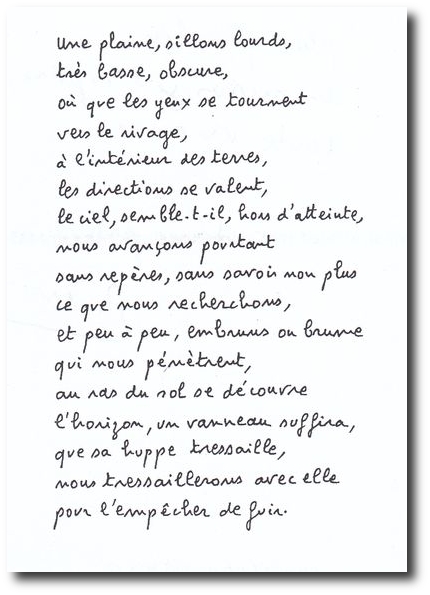 Une plaine, sillons lourds,
très basse, obscure,
où que les yeux se tournent
vers le rivage,
à l'intérieur des terres,
les directions se valent,
le ciel, semble-t-il, hors d'atteinte,
nous avançons pourtant
sans repères, sans savoir non plus
ce que nous recherchons,
et peu à peu, embruns ou brume
qui nous pénètrent,
au ras du sol se découvre
l'horizon, un vanneau suffira,
que sa huppe tressaille,
nous tressaillerons avec elle
pour l'empêcher de fuir.